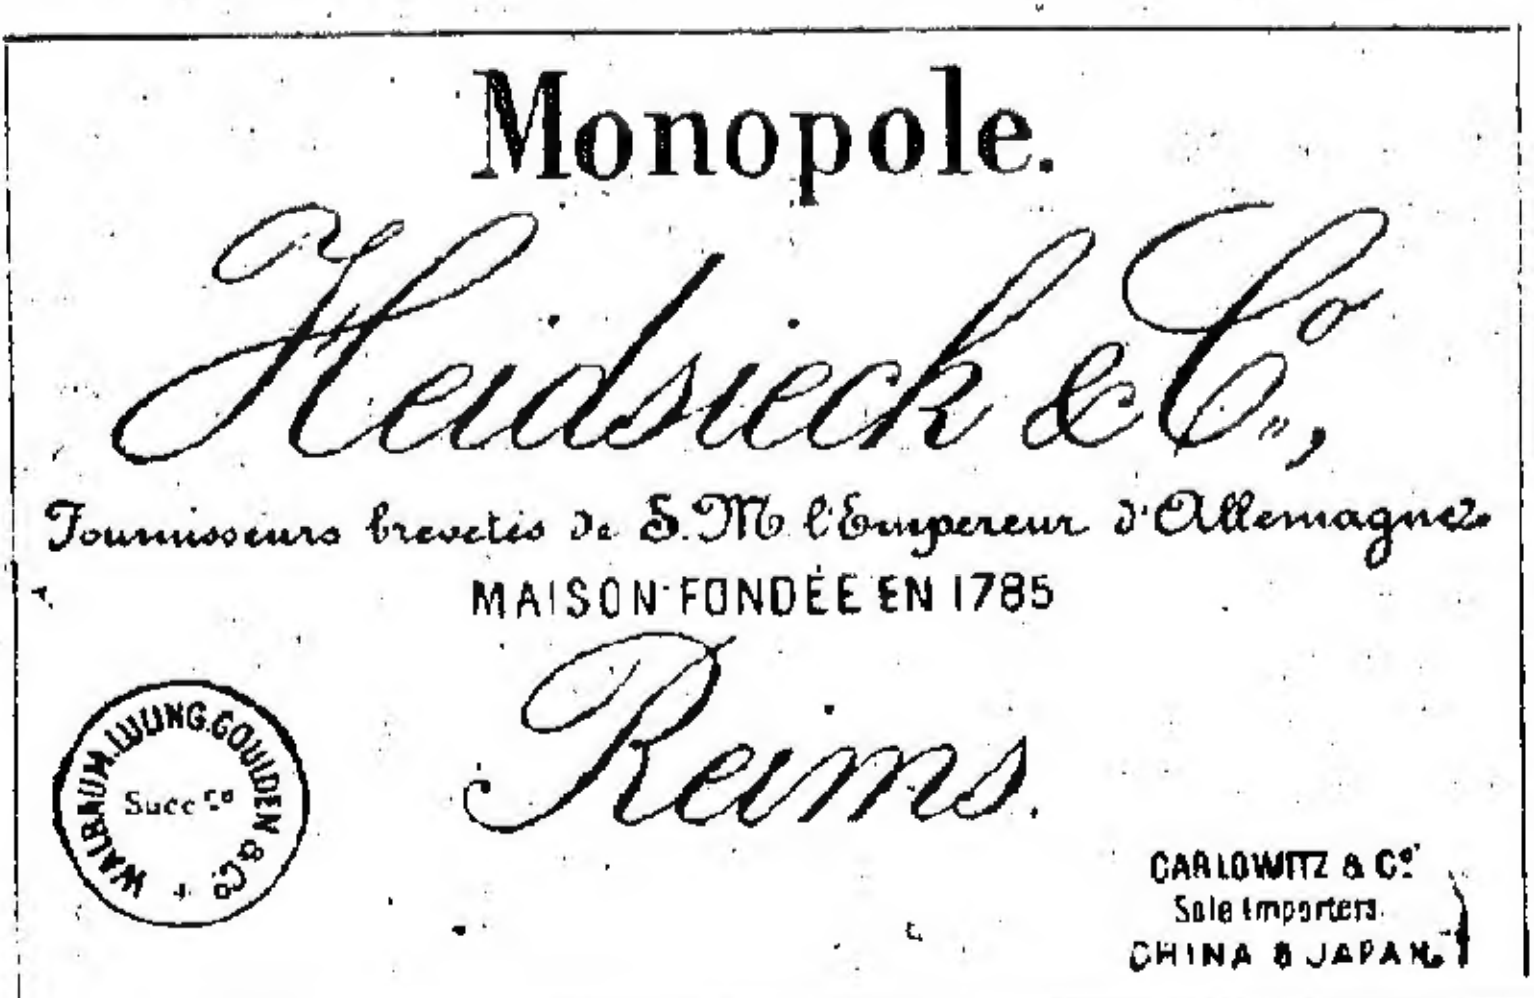 Monopole.
Heidsieck & Co.,
Fournisseurs brevetés de S.M l'Empereur d'Allemagne.
MAISON FONDÉE EN 1785
Reims.
WALBAUM. LUUNG. GOULDEN & Co.
Succ rs
CARLOWITZ & Co.
Sole Importers
CHINA & JAPAN.